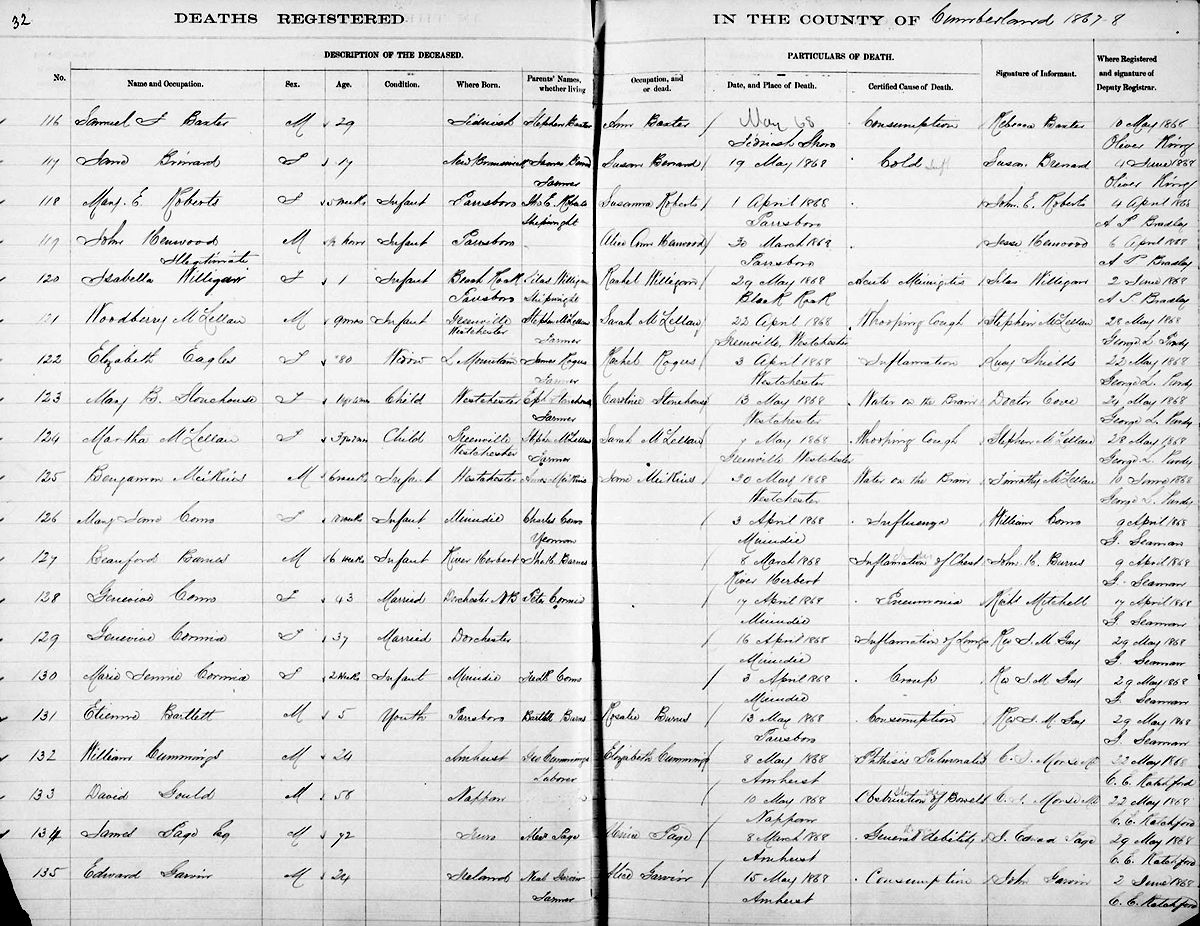 32
DEATHS REGISTERED IN THE COUNTY OF Cumberland 1867-8
DESCRIPTION OF THE DECEASED. PARTICULARS OF DEATH.
No. Name and Occupation. Sex. Age. Condition. Where Born. Parents' Names, whether living Occupation, and or dead. Date, and Place of Death. Certified Cause of Death. Signature of Informant. Where Registered and signature of Deputy Registrar.
116 Samuel Baxter M 29 Tidnish Stephen Baxter Ann Baxter May 68 Consumption Rebecca Baxter 10 May 1868
Tidnish Shore Oliver King
117 17 New Brunswick James Susan 19 May 1868 Cold Susan 4 June 1868
Farmer Oliver King
118 Mary E. Roberts 5 weeks Infant Parrsboro Susanna Roberts 1 April 1868 John E. Roberts 4 April 1868
Shipwright Parrsboro A Bradley
119 John Henwood M Infant Parrsboro Alice Ann Henwood 30 March 1868 Jesse Henwood 6 April 1868
Illegitimate Parrsboro A Bradley
120 Isabella Willigan 1 Infant Silas Willigan Rachel Willigan 29 May 1868 Acute Silas Willigan 2 June 1868
Parrsboro Shipwright Black Rock A Bradley
121 Woodberry McLellan M 9 mos Infant Greenville Stephen McLellan Sarah McLellan 22 April 1868 Whooping Cough Stephen McLellan 28 May 1868
Westchester Farmer Greenville, Westchester George L. Purdy
122 Elizabeth Eagles 80 Widow Mountain James Rogers Rachel Rogers 3 April 1868 Inflamation Shields 22 May 1868
Farmer Westchester George L. Purdy
123 Mary B. Stonehouse Child Westchester Stonehouse Caroline Stonehouse 13 May 1868 Water on the Brain Doctor Cove 24 May 1868
Farmer Westchester George L. Purdy
124 Martha McLellan Child Greenville Steph McLellan Sarah McLellan 7 May 1868 Whooping Cough Stephen McLellan 28 May 1868
Westchester Farmer Greenville Westchester George L. Purdy
125 Benjamin Meikins M 6 weeks Infant Westchester Meikins Jane Meikins 30 May 1868 Water on the Brain Timothy McLellan 10 June 1868
Westchester George L. Purdy
126 Mary Jane Coms weeks Infant Minudie Charles Coms 3 April 1868 Influenza William Coms 9 April 1868
Yeoman Minudie G. Seaman
127 Barnes M 6 weeks Infant River Herbert Barnes 8 March 1868 Inflamation of Chest John Burns 9 April 1868
River Herbert G. Seaman
128 Genevive Coms 43 Married Dorchester NB Peter Cormie 17 April 1868 Pneumonia Mitchell 17 April 1868
Minudie G. Seaman
129 Genevive Cormia 37 Married Dorchester 16 April 1868 Inflamation of Lungs Rev M. Gay 29 May 1868
Minudie G. Seaman
130 Marie Jennie Cormia 2 weeks Infant Minudie Coms 3 April 1868 Croup Rev M. Gay 29 May 1868
Minudie G. Seaman
131 Etienne Bartlett M 5 Youth Parrsboro Burns Rosalie Burns 13 May 1868 Consumption Rev M. Gay 29 May 1868
Parrsboro G. Seaman
132 William Cummings M 24 Amherst Geo Cummings Elizabeth Cummings 8 May 1868 Phthisis Pulmonalis C. Morse 22 May 1868
Laborer Amherst C. E. Ratchford
133 David Gould M 58 Nappan 10 May 1868 Obstruction of Bowels C. Morse 22 May 1868
Nappan C. E. Ratchford
134 James Page Esq M 72 Truro Page Page 8 March 1868 General debility Page 29 May 1868
Amherst C. E. Ratchford
135 Edward Garvin M 24 Ireland Neal Garvin Alice Garvin 15 May 1868 Consumption John Garvin 2 June 1868
Farmer Amherst C. E. Ratchford